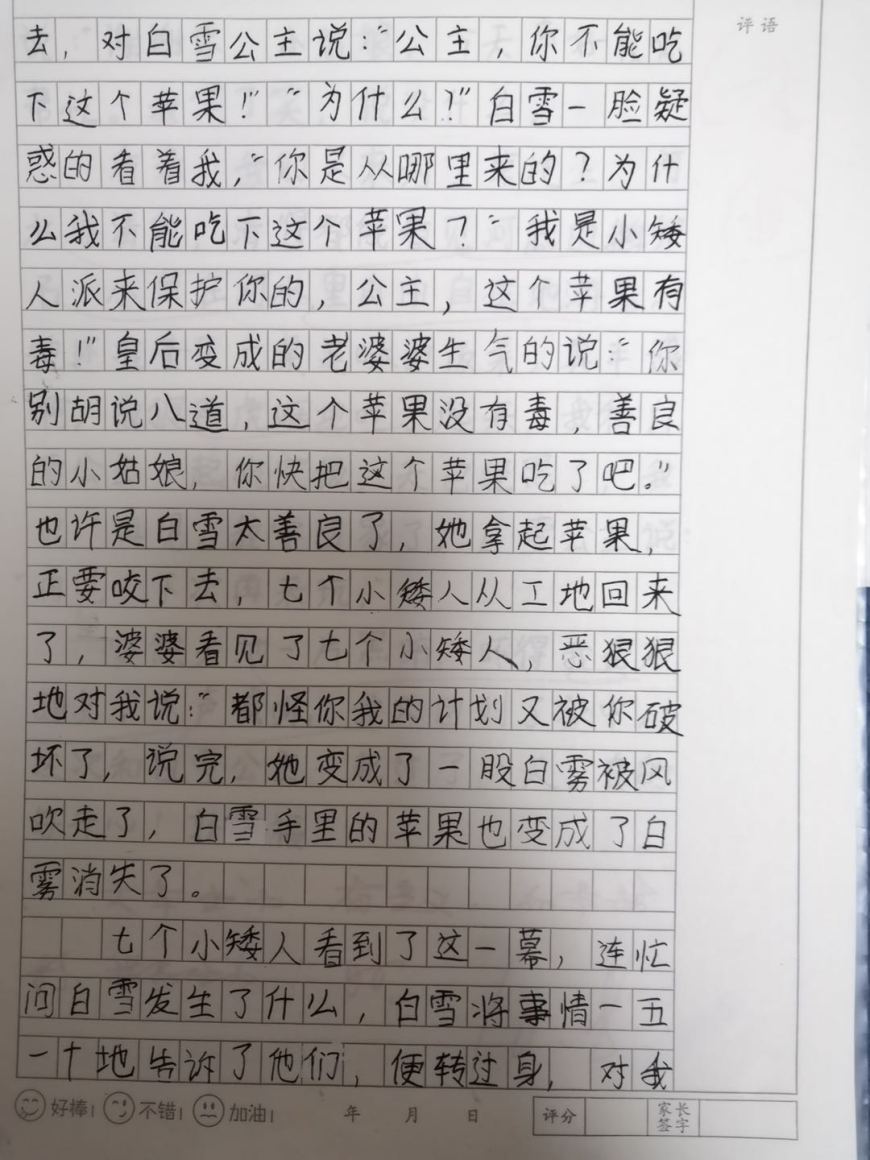 评语
去，对白雪公主说：“公主，你不能吃
下这个苹果！”“为什么？”白雪一脸疑
惑的看着我，“你是从哪里来的？为什
么我不能吃下这个苹果？”我是小矮
人派来保护你的，公主，这个苹果有
毒！”皇后变成的老婆婆生气的说：“你
别胡说八道，这个苹果没有毒，善良
的小姑娘，你快把这个苹果吃了吧。”
也许是白雪太善良了，她拿起苹果，
正要咬下去，七个小矮人从工地回来
了，婆婆看见了七个小矮人，恶狠狠
地对我说：“都怪你我的计划又被你破
坏了，说完，她变成了一股白雾被风
吹走了，白雪手里的苹果也变成了白
雾消失了。
七个小矮人看到了这一幕，连忙
问白雪发生了什么，白雪将事情一五
一十地告诉了他们，便转过身，对我
好棒！ 不错！ 加油！ 年 月 日 评分 家长签字